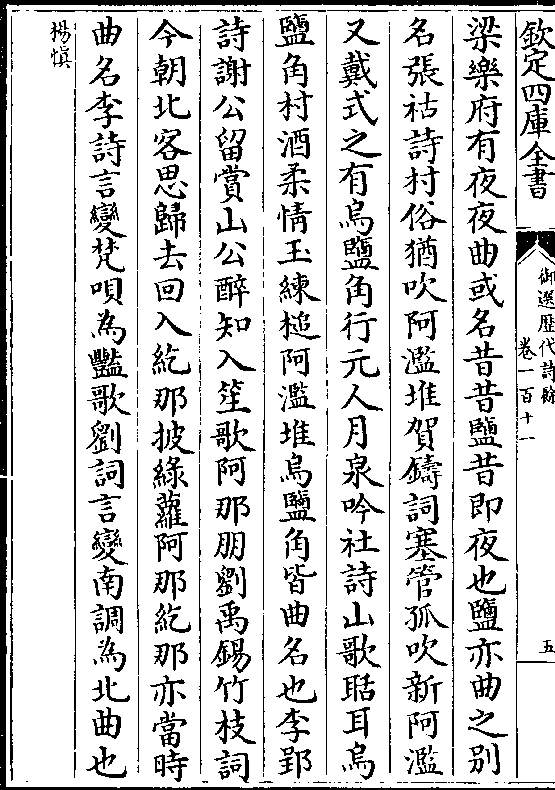 欽定四庫全書
御選歷代詩餘
卷一百十一
五
梁樂府有夜夜曲或名昔昔鹽昔即夜也鹽亦曲之别
名張祜詩村俗猶吹阿濫堆賀鑄詞塞管孤吹新阿濫
又戴式之有烏鹽角行元人月泉吟社詩山歌聒耳烏
鹽角村酒柔情玉練槌阿濫堆烏鹽角皆曲名也李郢
詩謝公留賞山公醉知入笙歌阿那朋劉禹錫竹枝詞
今朝北客思歸去回入紇那披綠蘿阿那紇那亦當時
曲名李詩言變梵唄為豔歌劉詞言變南調為北曲也
楊慎